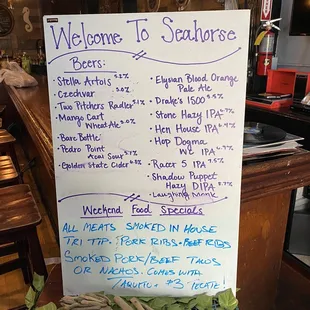 Welcome To Seahorse
Beers:
• Stella Artois 5.2%
• Czechvar 5.0%
• Two Pitchers Radler 5.1%
• Mango Cart
Wheat Ale 4.0%
• Bare Bottle
• Pedro Point
Acai Sour 5.7%
• Golden State Cider
• Elysian Blood Orange
Pale Ale
• Drake's 1500 5.5%
• Stone Hazy IPA
• Hen House IPA
• Hop Dogma
WC IPA
• Racer 5 IPA 7.5%
• Shadow Puppet
Hazy DIPA
• Laughing Monk
Weekend Food Specials
ALL MEATS SMOKED IN HOUSE
TRI TIP • PORK RIBS • BEEF RIBS
SMOKED PORK/BEEF TACOS
OR NACHOS. COMES WITH
TAQUITO + $3